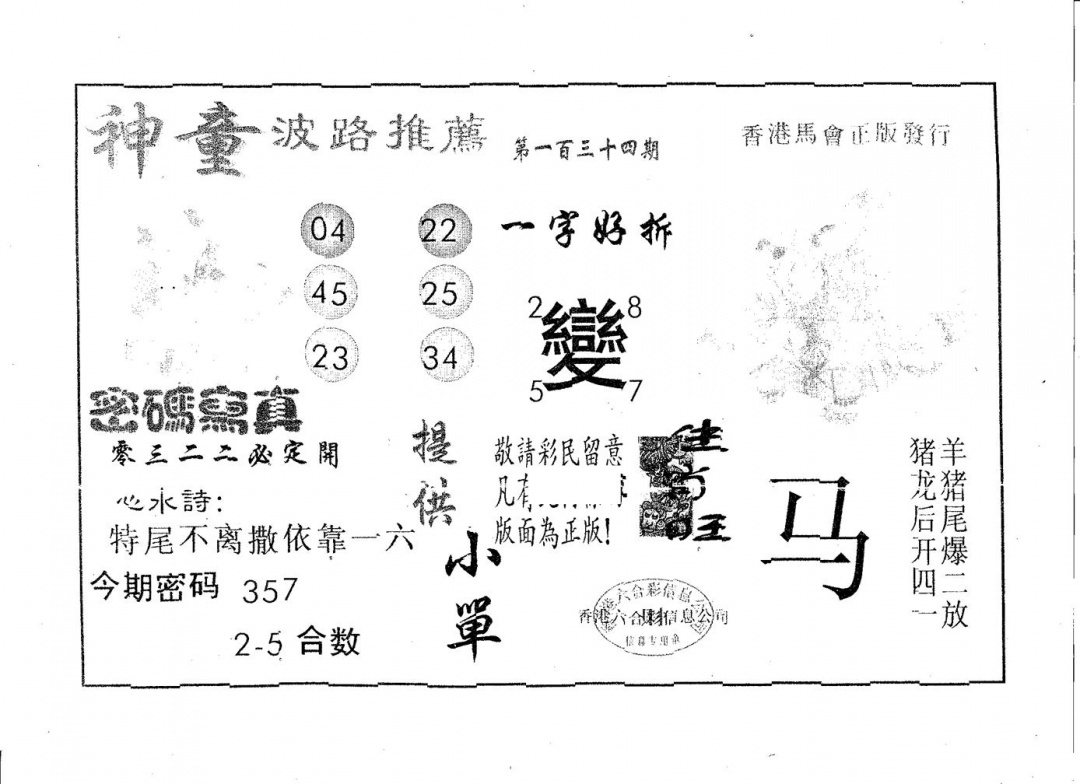 神童波路推薦
第一百三十四期
香港馬會正版發行
04 22
45 25
23 34
一字好拆
2 8
變
5 7
密碼寫真
零三二二必定開
心水詩:
特尾不离撒依靠一六
今期密码 357
2-5 合数
提供
小單
敬請彩民留意
凡有
版面為正版!
马
羊猪尾爆二放
猪龙后开四一
香港六合彩信息公司